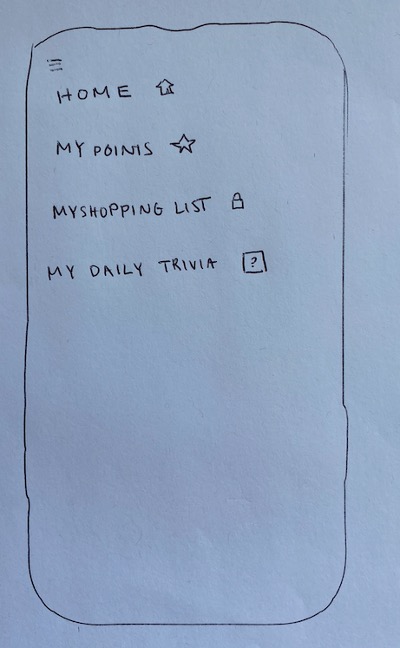 HOME
MY POINTS
MY SHOPPING LIST
MY DAILY TRIVIA ?